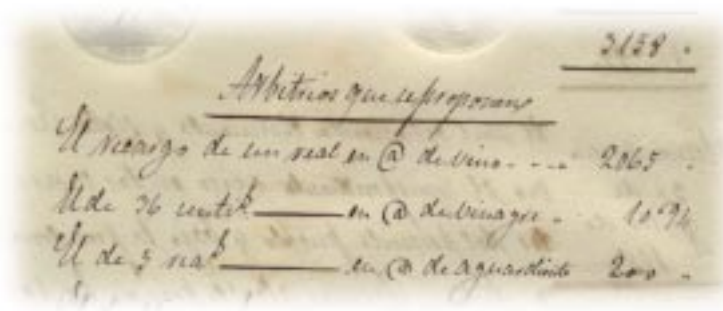 3158.
Arbitrios que se proponen
El recargo de un real en @ de vino - - - 2065.
El de 36 cents. en @ de vinagre - 10.94
El de 5 rea.s en @ de aguardiente 200.